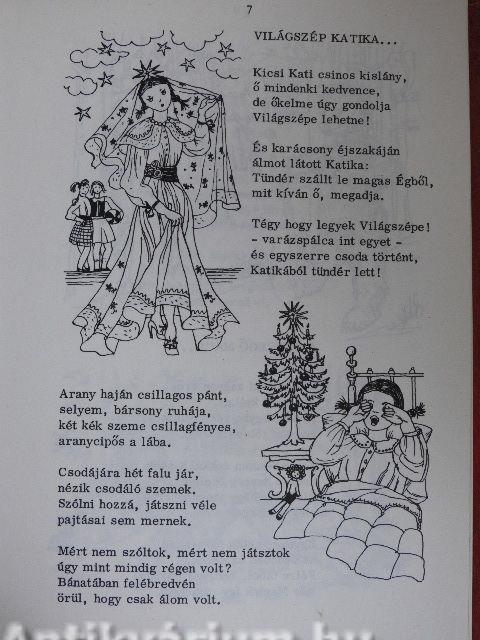 7
VILÁGSZÉP KATIKA...
Kicsi Kati csinos kislány,
ő mindenki kedvence,
de őkelme úgy gondolja
Világszépe lehetne!
És karácsony éjszakáján
álmot látott Katika:
Tündér szállt le magas Égből,
mit kíván ő, megadja.
Tégy hogy legyek Világszépe!
- varázspálca int egyet -
és egyszerre csoda történt,
Katikából tündér lett!
Arany haján csillagos pánt,
selyem, bársony ruhája,
két kék szeme csillagfényes,
aranycipős a lába.
Csodájára hét falu jár,
nézik csodáló szemek.
Szólni hozzá, játszni véle
pajtásai sem mernek.
Mért nem szóltok, mért nem játsztok
úgy mint mindig régen volt?
Bánatában felébredvén
örül, hogy csak álom volt.
Antikvárium.hu